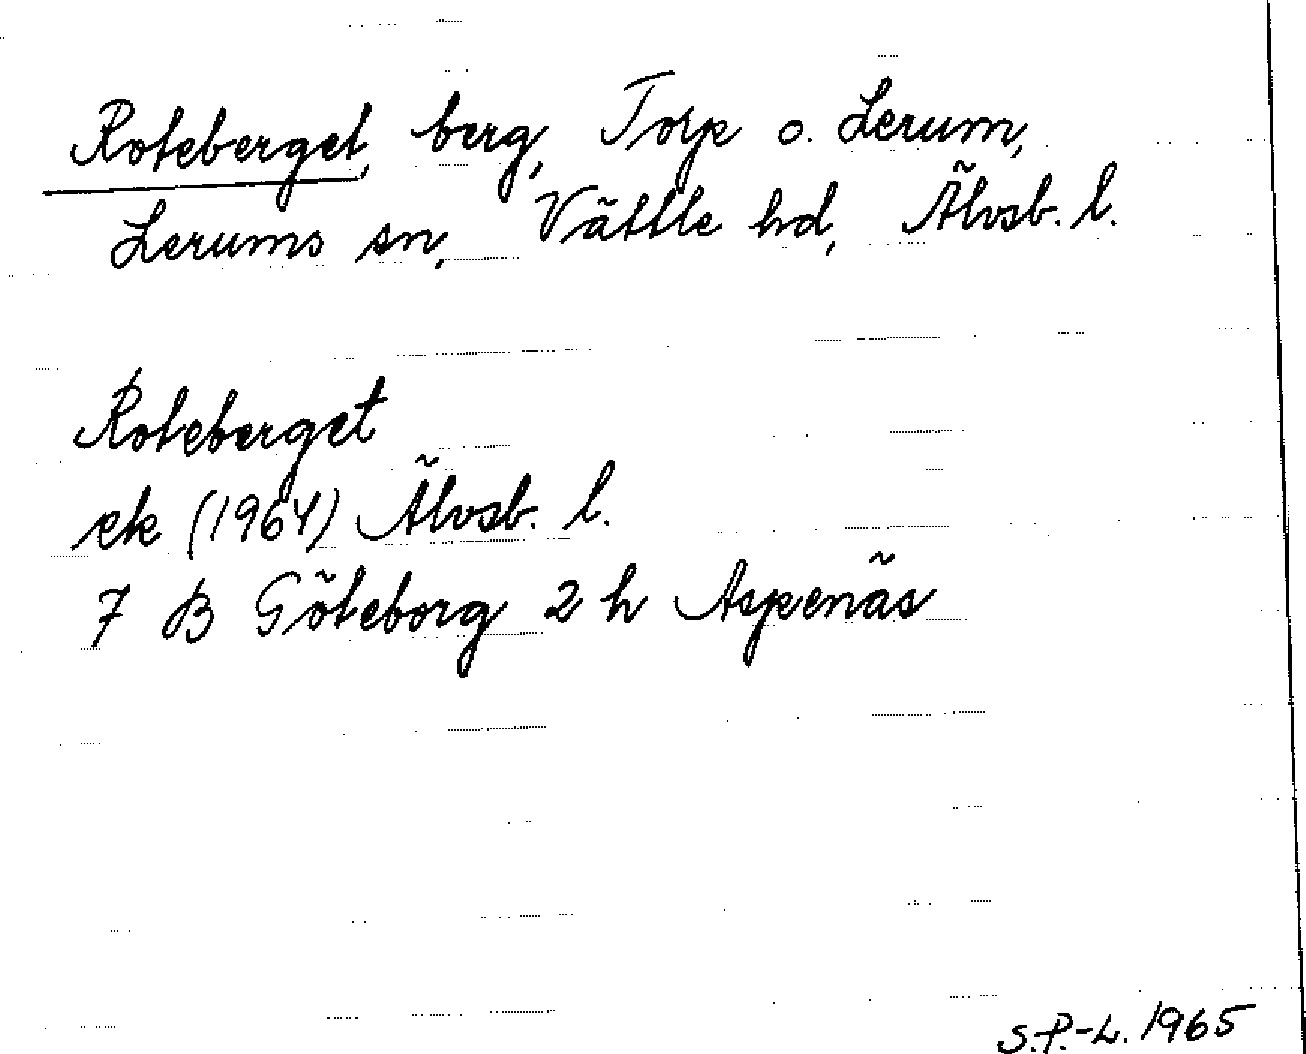 Roteberget, berg, Torp o. Lerum,
Lerums sn, Vättle hd, Älvsb. l.
Roteberget
ek (1964) Älvsb. l.
7 B Göteborg 2 h Aspenäs
S.P.-L. 1965